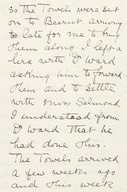 so the Towels were sent
on to Beirut arriving
too late for me to bring
them along. I left a
card with D Ward
asking him to forward
them and to settle
with Miss Salmond
I understood from
D Ward that he
had done this.
The Towels arrived
a few weeks ago
and this week